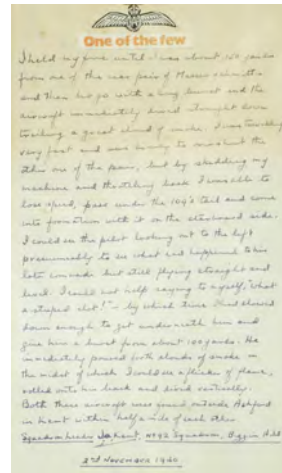 One of the few
I held my fire until I was about 150 yards
from one of the rear pair of Messerschmitts
and then let go with a long burst and the
aircraft immediately dived straight down
trailing a great cloud of smoke. I was travelling
very fast and was going to overshoot the
other one of the pair, but by skidding my
machine and throttling back I was able to
lose speed, pass under the 109's tail and come
into formation with it on the starboard side.
I could see the pilot looking out to the left
presumably to see what had happened to his
late comrade but still flying straight and
level. I could not help saying to myself, "what
a stupid clot!" – by which time I had slowed
down enough to get underneath him and
give him a burst from about 100 yards. He
immediately poured forth clouds of smoke in
the midst of which I could see a flicker of flame,
rolled onto his back and dived vertically.
Both these aircraft were found outside Ashford
in Kent within half a mile of each other.
Squadron Leader Kent, No 92 Squadron, Biggin Hill
2nd November 1940